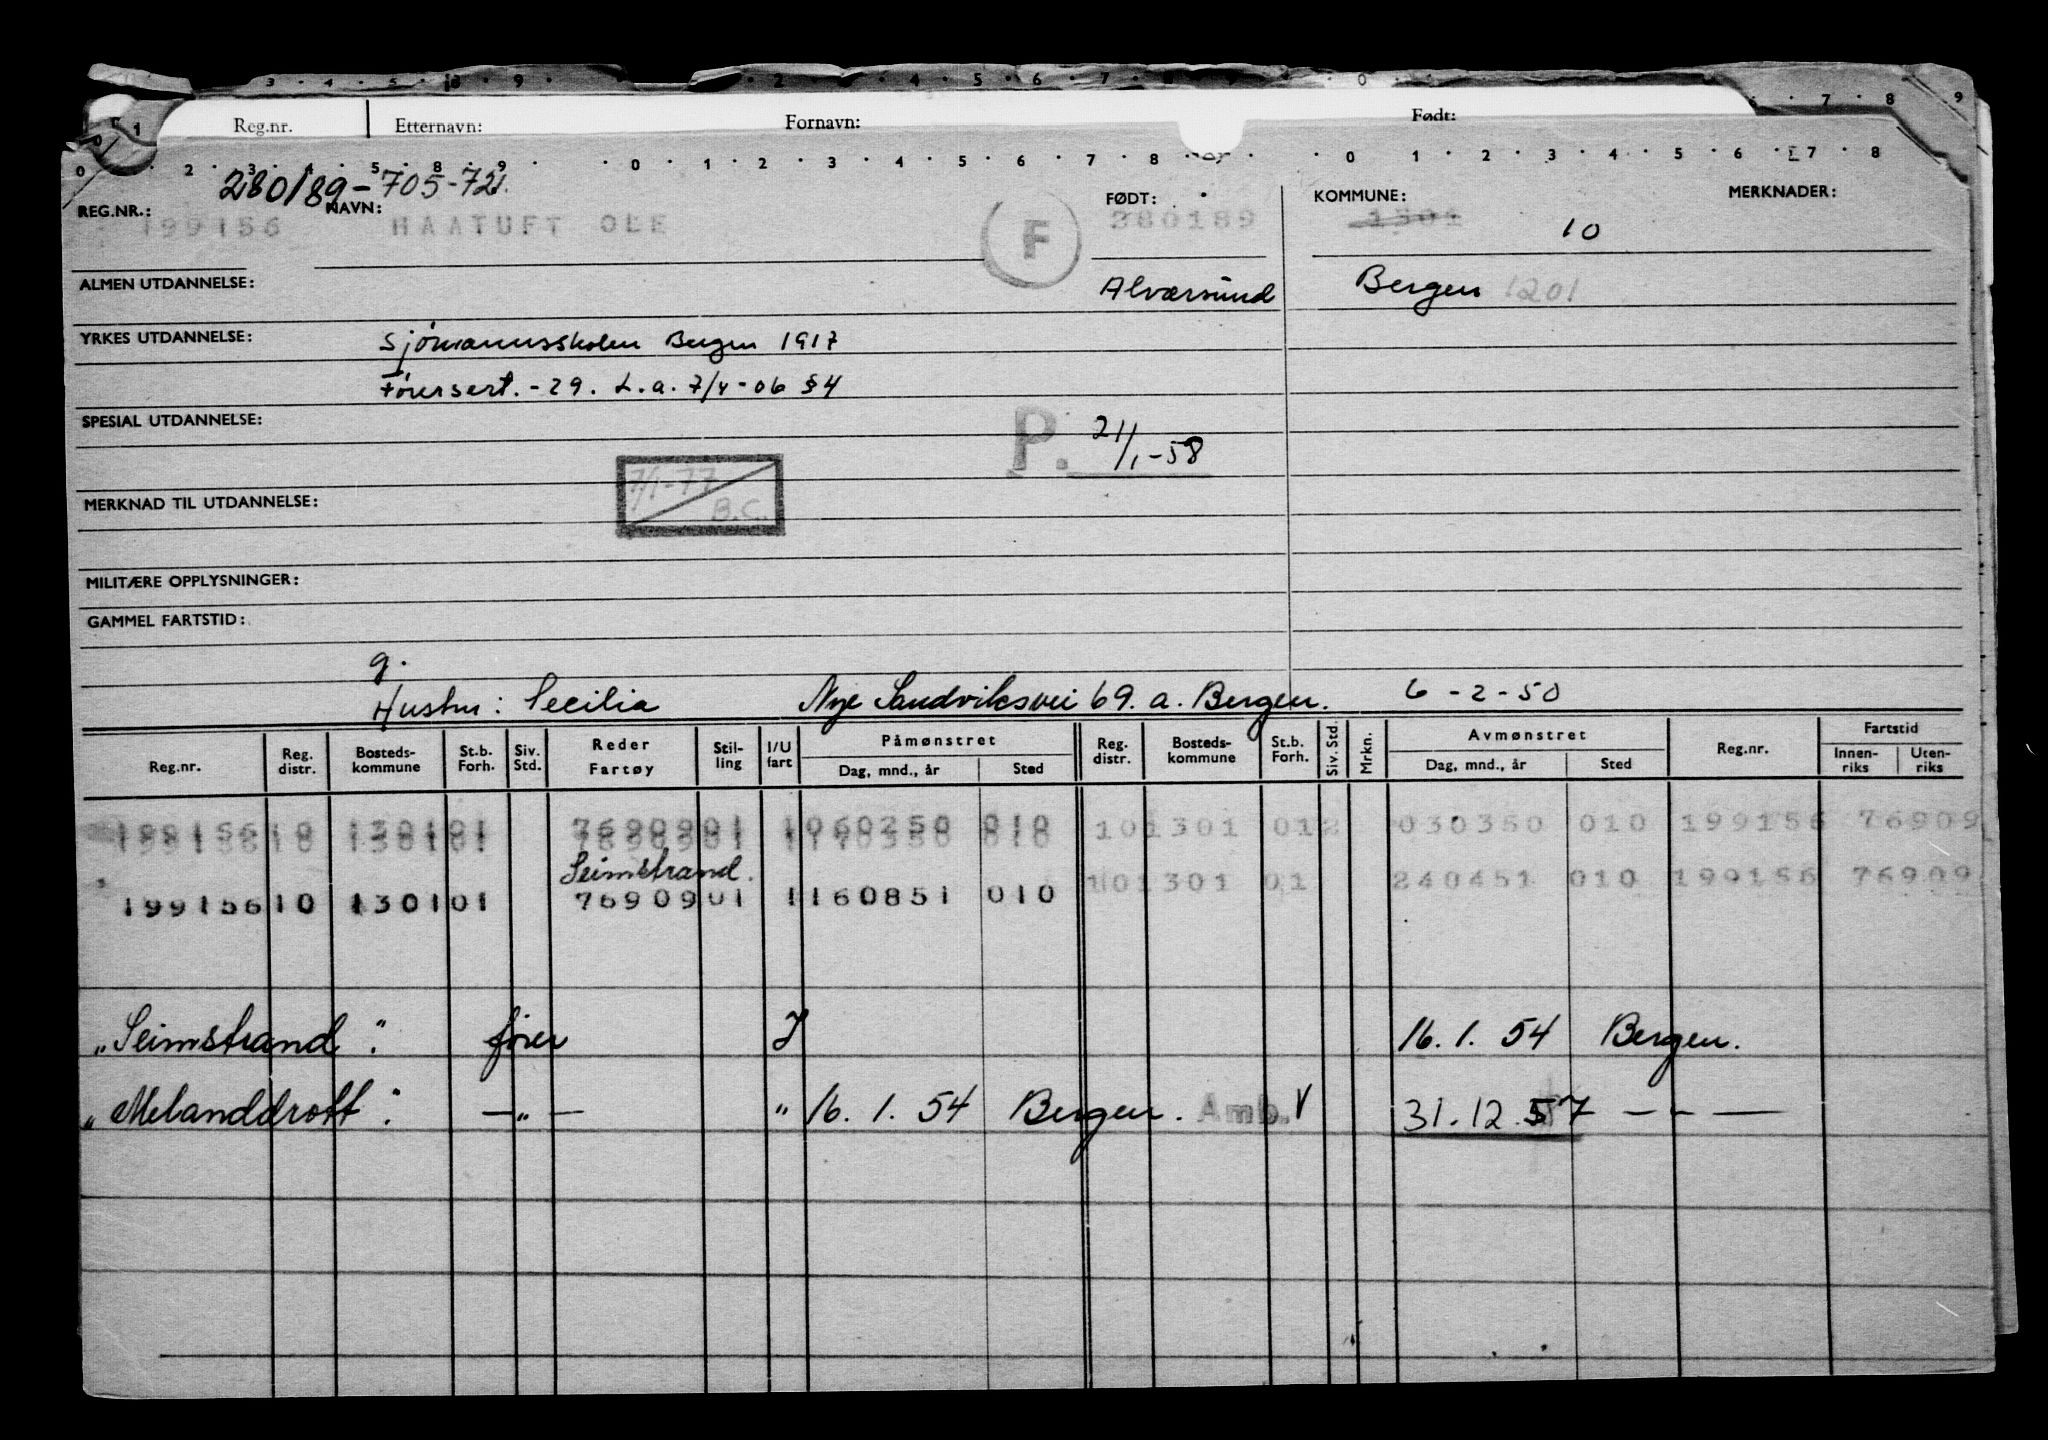 Reg.nr. Etternavn: Fornavn: Født:
280189-705-72
REG.NR.: NAVN: FØDT: KOMMUNE: MERKNADER:
199156 HAATUFT OLE F 280189 1301 10
ALMEN UTDANNELSE: Alværsund Bergen 1201
YRKES UTDANNELSE: Sjömannsskolen Bergen 1917
Förersert. -29. L.a. 7/4-06 §4
SPESIAL UTDANNELSE: P. 21/1-58
7/1-77 B.C.
MERKNAD TIL UTDANNELSE:
MILITÆRE OPPLYSNINGER:
GAMMEL FARTSTID:
g.
Hustru: Cecilia Nye Sandviksvei 69.a. Bergen. 6-2-50
Reg.nr. Reg. distr. Bosteds-kommune St.b. Forh. Siv. Std. Reder Fartøy Stil-ling I/U fart Påmønstret Dag, mnd., år Sted Reg. distr. Bosteds-kommune St.b. Forh. Siv. Std. Mrkn. Avmønstret Dag, mnd., år Sted Reg.nr. Fartstid Innen-riks Uten-riks
199156 10 1301 01 76909 01 1 060250 010 10 1301 01 2 030350 010 199156 76909
199156 10 1301 01 76909 01 1 170350 010
Seimstrand. 10 1301 01 240451 010 199156 76909
199156 10 1301 01 76909 01 1 160851 010
"Seimstrand". förer I 16.1.54 Bergen.
"Melanddrott". —"— " 16.1.54 Bergen. Amb. V 31.12.57 — " —